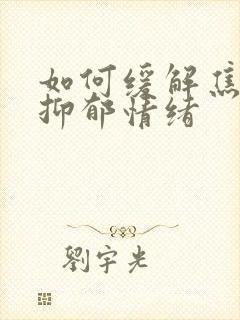 如何缓解焦
抑郁情绪
劉宇光